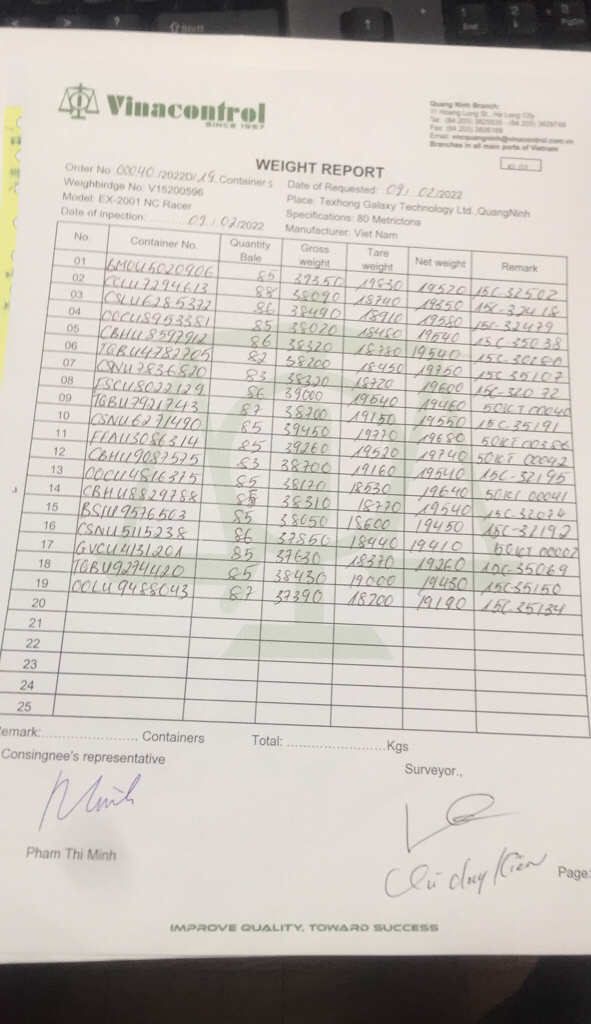 Vinacontrol
SINCE 1957
Quang Ninh Branch:
11 Hoang Long St., Ha Long City
Email: vncquangninh@vinacontrol.com.vn
Branches in all main ports of Vietnam
WEIGHT REPORT
Order No: 00040 /2022D/ 19 Containers
Date of Requested: 09 / 02/2022
Weighbirdge No: V15200596
Place: Texhong Galaxy Technology Ltd.,QuangNinh
Model: EX-2001 NC Racer
Specifications: 80 Metrictons
Date of inpection: 09 / 02/2022
Manufacturer: Viet Nam
No. Container No. Quantity Bale Gross weight Tare weight Net weight Remark
01 BMOU5020906 85 39350 19830 19520 15C-32502
02 CCLU7294613 88 38090 18740 19350 15C-32418
03 CSLU6285372 86 38490 18910 19580 15C-32479
04 OOCU8953381 85 38020 18480 19540 15C-35038
05 CBHU8592912 86 38320 18780 19540 15C-30180
06 TGBU4782705 82 38200 18450 19750 15C-35107
07 CSNU7836820 83 38320 18720 19600 15C-320 72
08 FSCU8022129 86 39000 19540 19460 50KT 00040
09 TGBU7921743 87 38700 19150 19550 15C-35191
10 CSNU6271490 85 39450 19770 19680 50KT 00386
11 85 39260 19520 19740 50KT 00042
12 CBHU9087575 83 38700 19160 19540 15C-32195
13 OOCU4816375 85 38170 18530 19640 50KT 00041
14 CBHU8829758 38310 18770 19540 15C-32074
15 85 38050 18600 19450 15C-32192
16 CSNU5115238 86 37850 18440 19410 50KT 00007
17 GVCU4131201 85 37630 18370 19260 15C-35069
18 TGBU9274420 85 38430 19000 19430 15C-35150
19 OOLU9488043 87 37390 18200 19190 15C-35134
20
21
22
23
24
25
emark: Containers Total: Kgs
Consingnee's representative
Surveyor.,
Pham Thi Minh
Page:
IMPROVE QUALITY, TOWARD SUCCESS